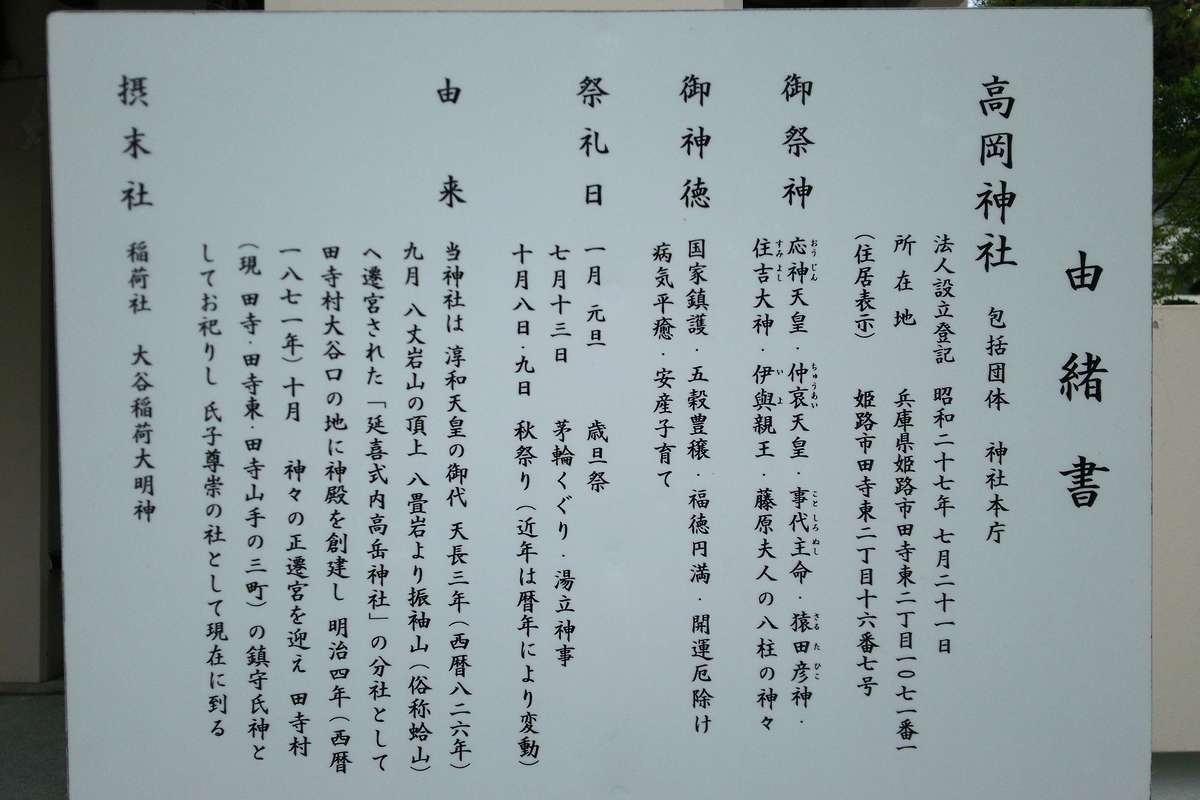 由緒書
高岡神社 包括団体 神社本庁
法人設立登記 昭和二十七年 七月二十一日
所在地 兵庫県姫路市田寺東二丁目一〇七一番一
（住居表示） 姫路市田寺東二丁目十六番七号
御祭神 応神天皇・仲哀天皇・事代主命・猿田彦神・
おうじん ちゅうあい ことしろぬし さるたひこ
住吉大神・伊與親王・藤原夫人の八柱の神々
すみよし いよ
御神徳 国家鎮護・五穀豊穣・福徳円満・開運厄除け
病気平癒・安産子育て
祭礼日 一月 元旦 歳旦祭
七月十三日 茅輪くぐり・湯立神事
十月八日・九日 秋祭り（近年は暦年により変動）
由来 当神社は 淳和天皇の御代 天長三年（西暦八二六年）
九月 八丈岩山の頂上 八畳岩より振袖山（俗称蛤山）
へ遷宮された「延喜式内高岳神社」の分社として
田寺村大谷口の地に神殿を創建し 明治四年（西暦
一八七一年）十月 神々の正遷宮を迎え 田寺村
（現 田寺・田寺東・田寺山手の三町）の鎮守氏神と
してお祀りし 氏子尊崇の社として現在に到る
摂末社 稲荷社 大谷稲荷大明神